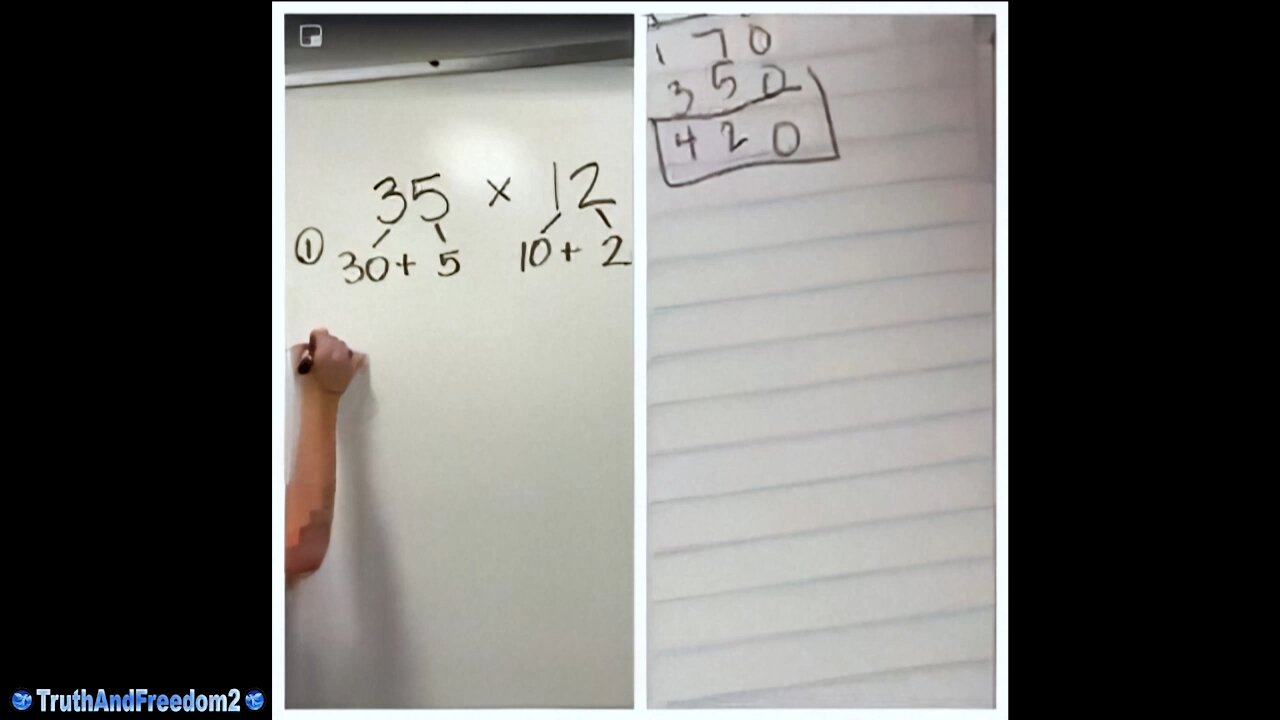 35 × 12
① 30 + 5 10 + 2
1 70
3 5 0
4 2 0
TruthAndFreedom2